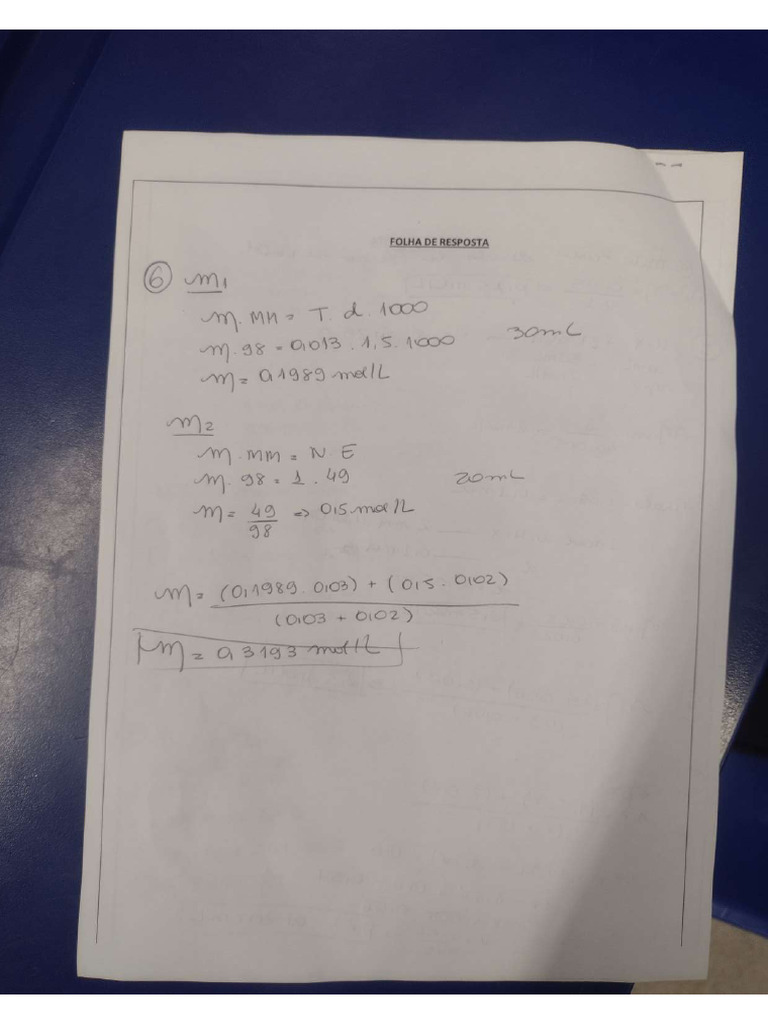 FOLHA DE RESPOSTA
6 M1
M. MM = T. d. 1000
M. 98 = 0,013 . 1,5. 1000 30mL
M = 0,1989 mol/L
M2
M. MM = N. E
M. 98 = 1 . 49 20mL
M = 49 => 0,5 mol/L
98
M = (0,1989 . 0,03) + (0,5 . 0,02)
(0,03 + 0,02)
M = 0,3193 mol/L